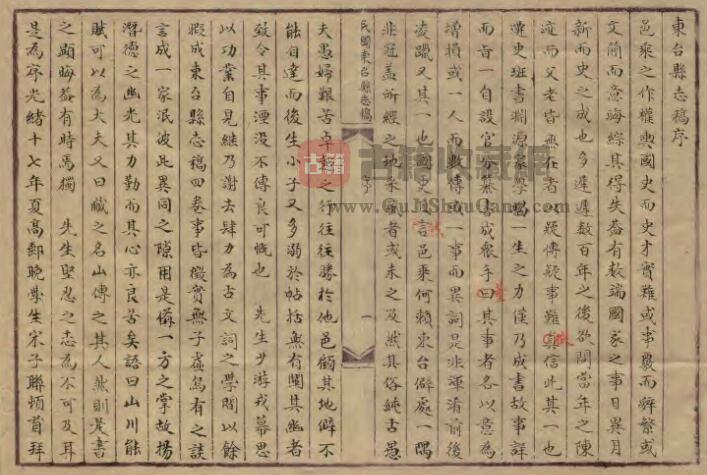 東台縣志稿序
邑乘之作權輿國史而史才實難或事嚴而辭繁或
文簡而意晦綜其得失蓋有數端國家之事日異月
新而史之成也多遲遲數百年之後欲問當年之陳
迹而父老皆無在者以疑傳疑事難真信此其一也
遷史班書淵源家學竭一生之力僅乃成書故事詳
而旨一自設官分纂書成眾手曰其事者各以意為
增損或一人而數傳或一事而異詞是非渾淆前後
凌躐又其一也國史言邑乘何賴東台僻處一隅
非冠蓋所經之地采者或未之及然其俗純古愚
民國東台縣志稿
序
一
夫愚婦艱苦卓絕之行往往勝於他邑顧其地僻不
能自達而後生小子又多溺於帖括無有闡其幽者
致令其事湮沒不傳良可慨也 先生少游戎幕思
以功業自見繼乃謝去肆力為古文詞之學間以餘
暇成東台縣志稿四卷事皆徵實無子虛烏有之談
言成一家泯彼此異同之隙用是備一方之掌故揚
潛德之幽光其力勤而其心亦良苦矣語曰山川能
賦可以為大夫又曰藏之名山傳之其人然則是書
之顯晦蓋有時焉獨 先生堅忍之志為不可及耳
是為序光緒十七年夏高郵晚學生宋子聯頓首拜
古籍
古籍收藏網
www.GuJiShouCang.com